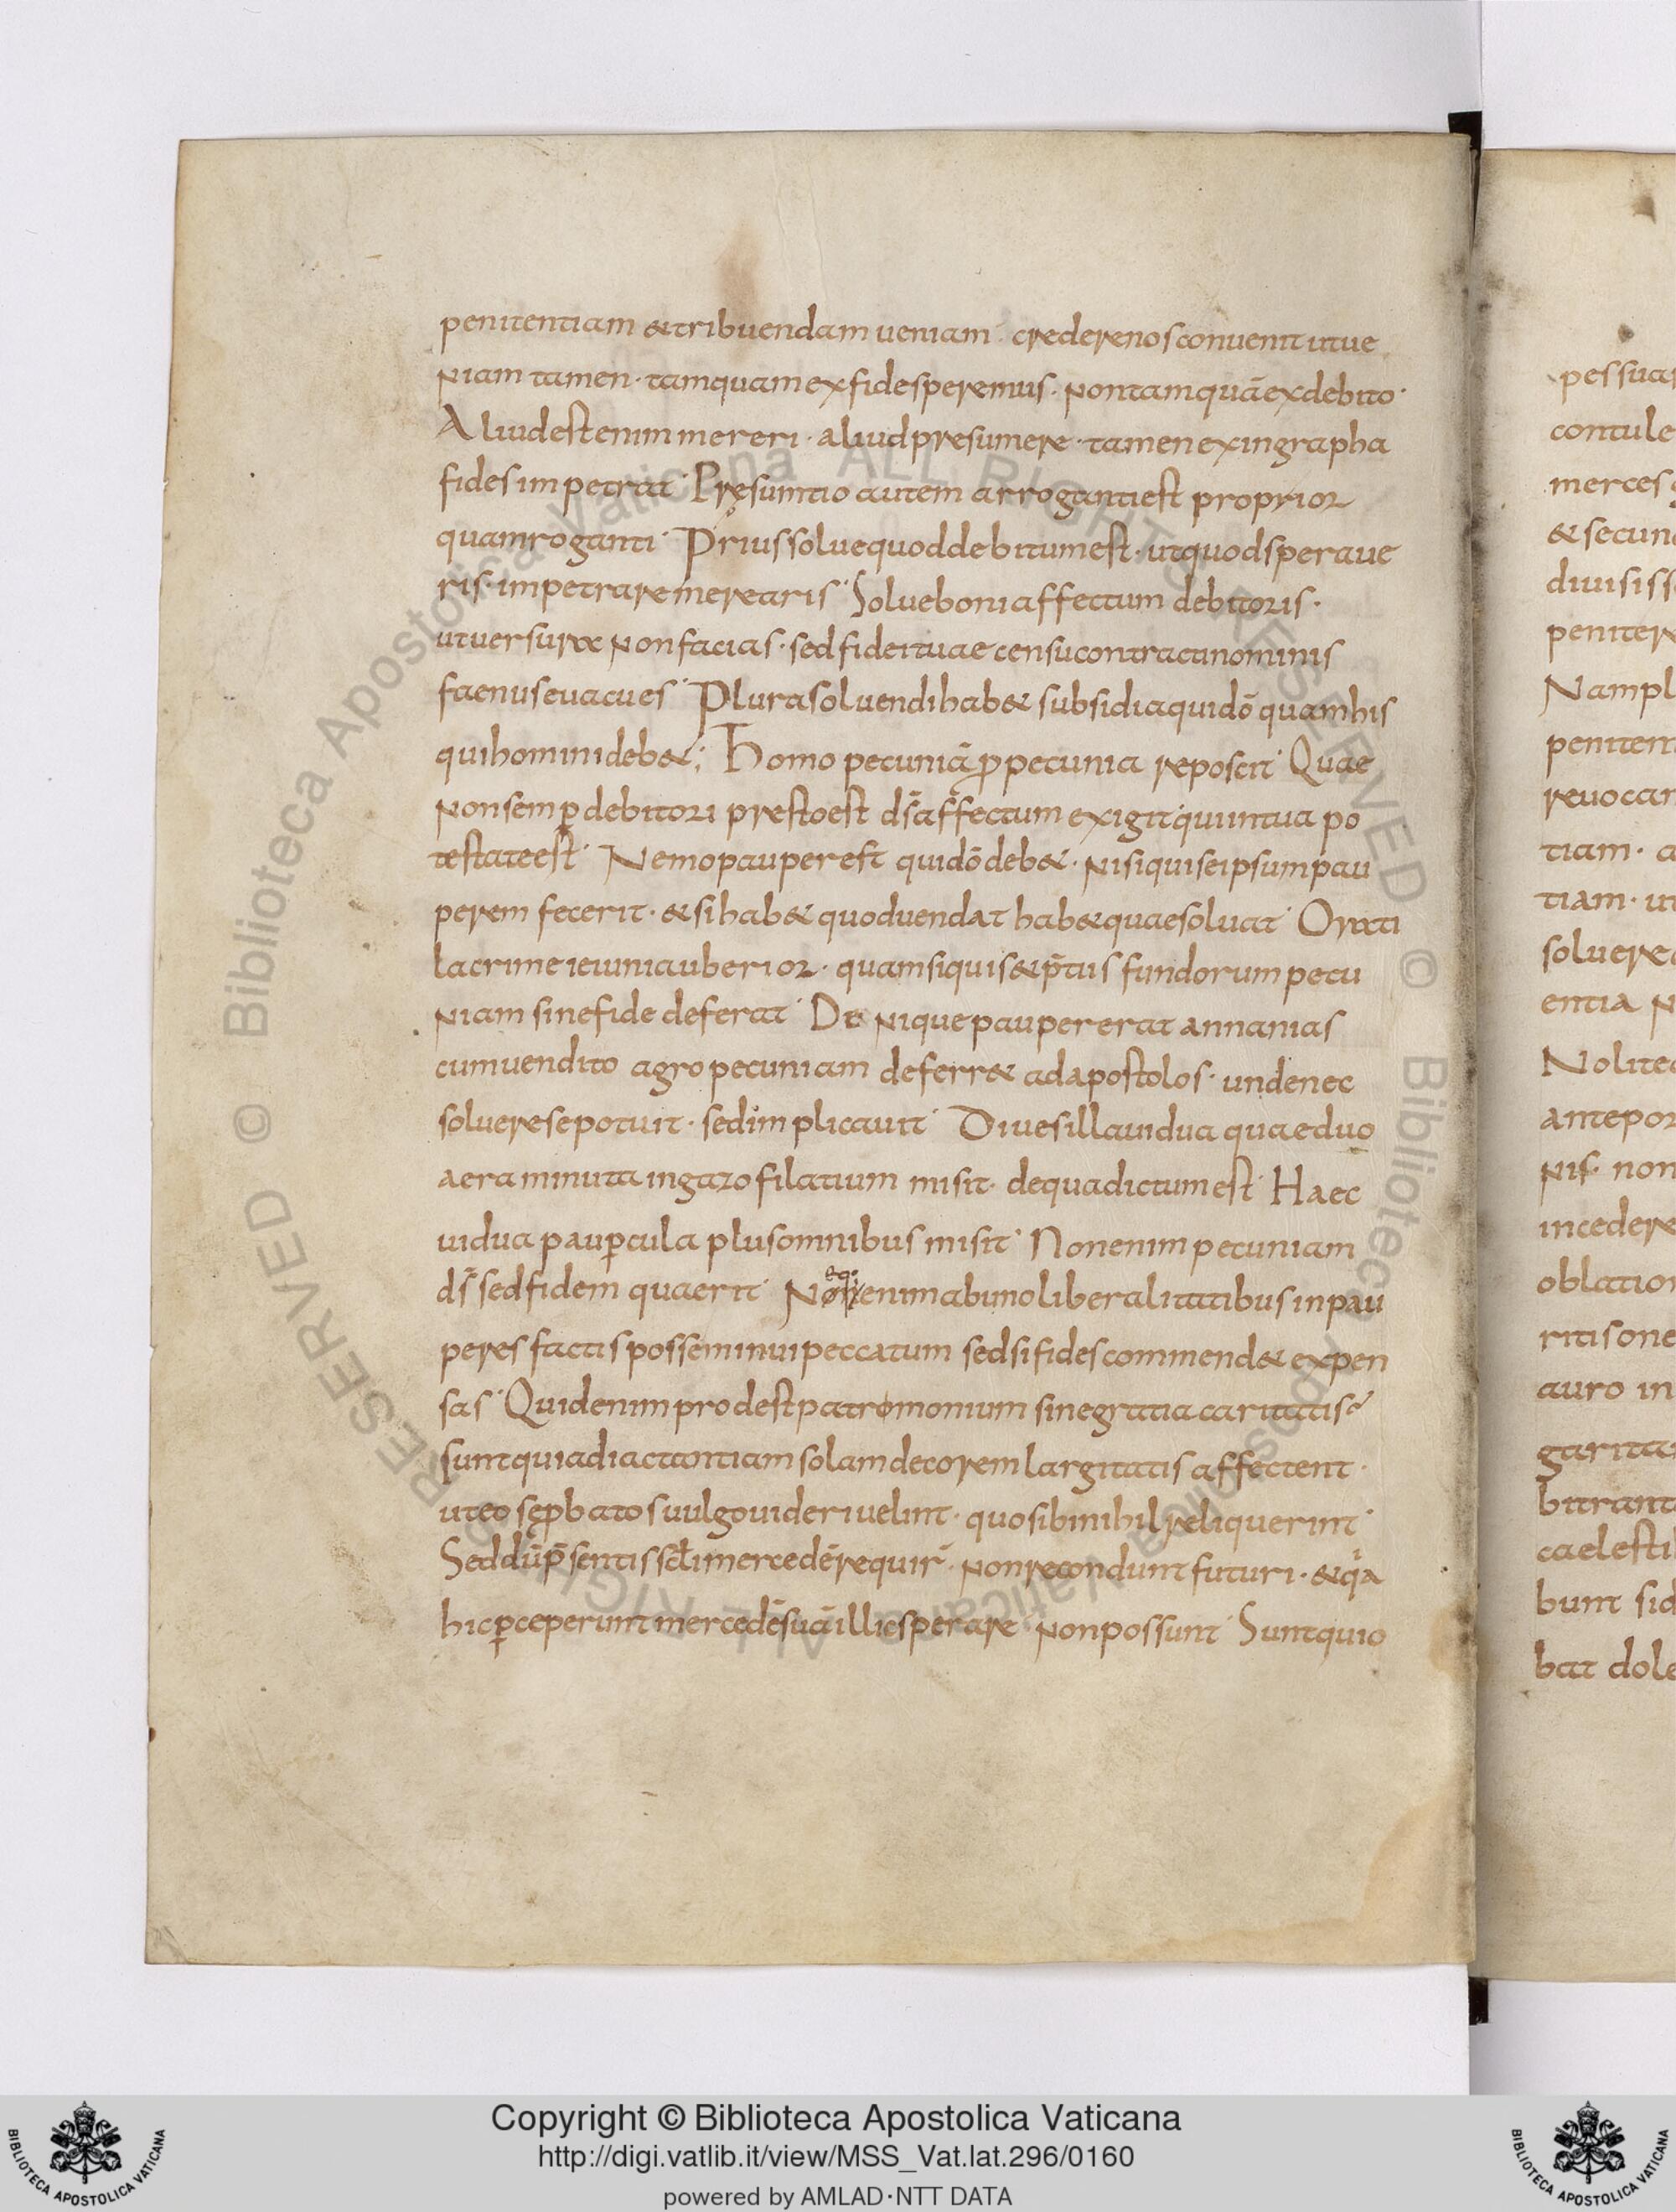 penitentiam &tribuendam ueniam · credere nos conuenit ut ue
niam tamen · tamquam ex fide speremus · non tamquā ex debito ·
Aliud est enim mereri · aliud presumere · tamen exingrapha
fides impetrat · Presumtio autem arroganti est proprior
quam roganti · Prius solue quod debitum est · ut quod speraue
ris · impetrare merearis · Solue boni affectum debitoris ·
ut uersurae non facias · sed fidei tuae censu contracti nominis
faenus euacues · Plura soluendi hab& subsidia qui dō quam his
qui homini deb&; Homo pecuniā ꝓ pecunia reposcit · Quae
non semꝑ debitori presto est ds̄ affectum exigit qui in tua po
testate est · Nemo pauper est qui dō deb& · nisi qui se ipsum pau
perem fecerit · & si hab& quod uendat hab& quae soluat · Orati
lacrime ieiunia uberior · quam si quis & p̄tiis fundorum pecu
niam sine fide deferat · Denique pauper erat annanias
cum uendito agro pecuniam deferr& ad apostolos · unde nec
soluere se potuit · sed implicauit · Diues illa uidua quae duo
aera minuta in gazofilatium misit · de qua dictum est · Haec
uidua pauꝑcula plus omnibus misit · Non enim pecuniam
ds̄ sed fidem quaerit · Non enim abuno liberalitatibus in pau
peres factis posse minui peccatum sed si fides commend& expen
sas · Quid enim prodest patromonium sine gratia caritatis
sunt qui ad iactantiam solam decorem largitatis affectent ·
ut eo se ꝓbatos uulgo uideri uelint · quo sibi nihil reliquerint ·
Sed dū p̄sentis sc̄li mercedē requir̄ · non recondunt futuri · & q̇a
hic ꝑceperunt mercedē suā illic sperare non possunt · Sunt qui o
pes sua
contule
merces
& secun
diuisiss
peniter
Nam pl
peniten
reuocar
tiam · a
tiam · ut
soluere
entia n
Nolite
antepor
nis · non
incedere
oblation
ritis one
auro in
garita
bitrant
caelesti
bunt sic
bat dole
Copyright © Biblioteca Apostolica Vaticana
http://digi.vatlib.it/view/MSS_Vat.lat.296/0160
powered by AMLAD·NTT DATA
BIBLIOTECA APOSTOLICA VATICANA
BIBLIOTECA APOSTOLICA VATICANA